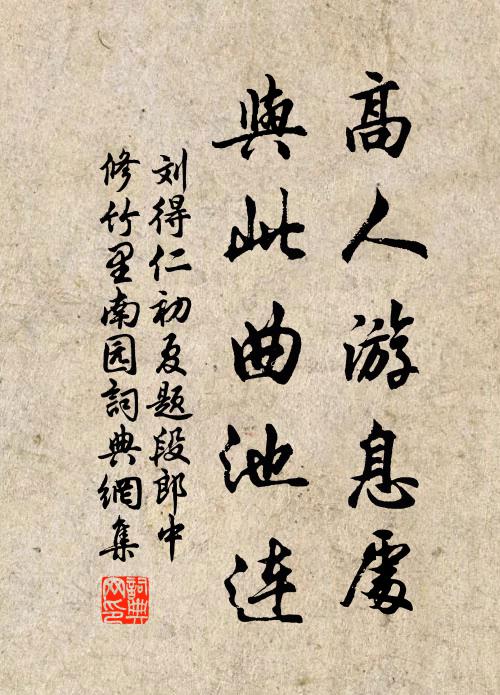 高人游息處
與此曲池連
刘得仁初夏题段郎中
修竹里南园詞典網集
詞典
网印